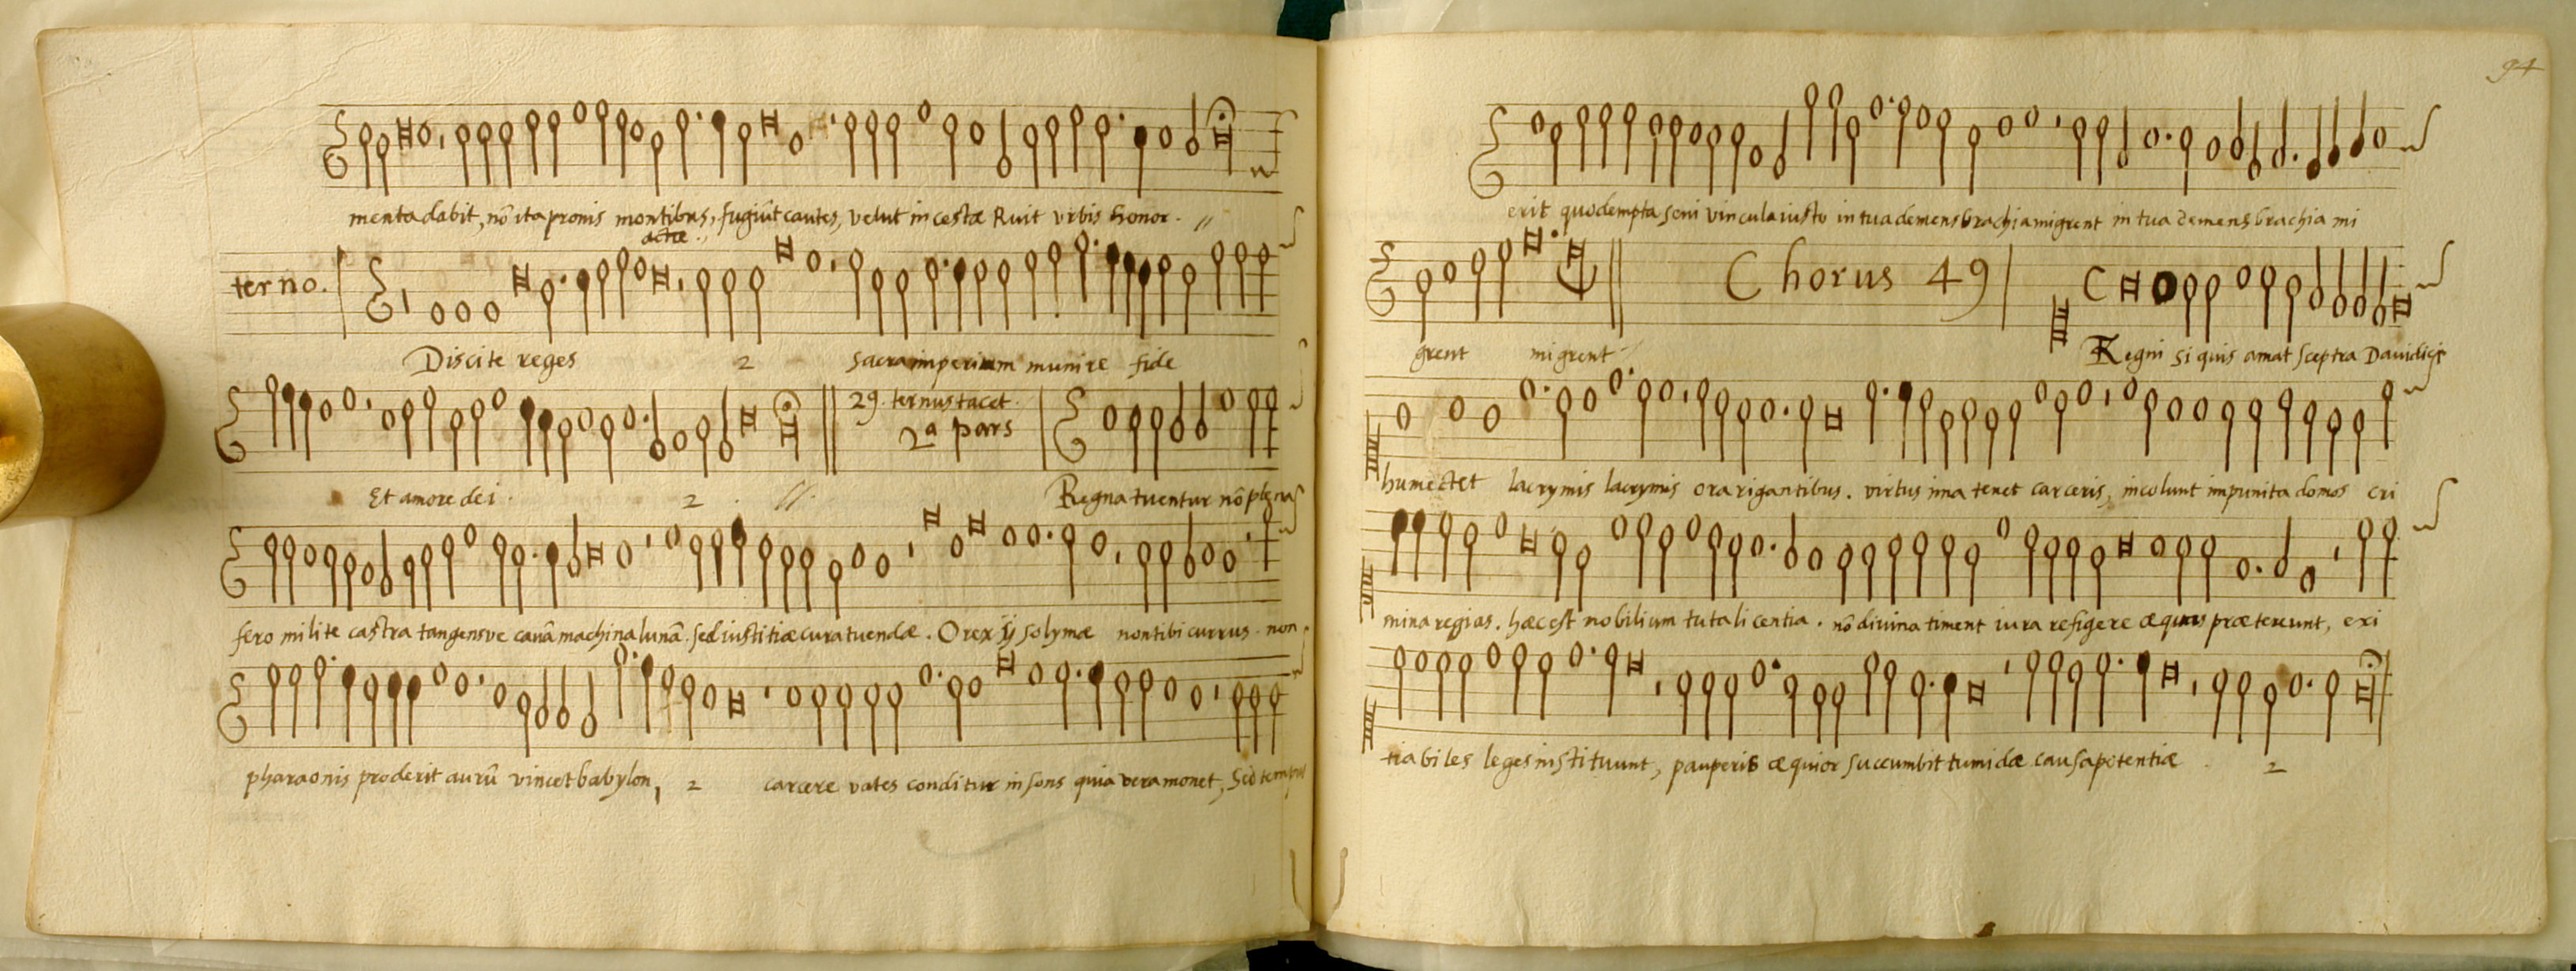 menta dabit, nō ita pronis montibus, fugiūt cautes, velut in cestæ Ruit vrbis honor. //
actæ.
ter no.
Discite reges 2 sacra imperium munire fide
29. ternus tacet.
2ª pars
Et amore dei. 2. //. Regna tuentur nō plena
fero milite castra tangensve cavā machina lunā. sed iustitiæ cura tuendæ. O rex ÿ solymæ non tibi currus. non.
pharaonis proderit aurū vincet babylon, 2 carcere vates conditur insons quia vera monet, Sed tempus
94
erit quo dempta soni vincula iusto in tua demens brachia migrent in tua demens brachia mi
Chorus 49
grent migrent // Regni si quis amat sceptra Dauidicj
humectet lacrymis lacrymis ora rigantibus. virtus ima tenet carceris, incolunt impunita domos cri
mina regias. hæc est nobilium tuta licentia. nō divina timent iura refigere æquus prætereunt, exi
tiabiles leges instituunt, pauperis æquior succumbit tumidæ causa potentiæ. 2